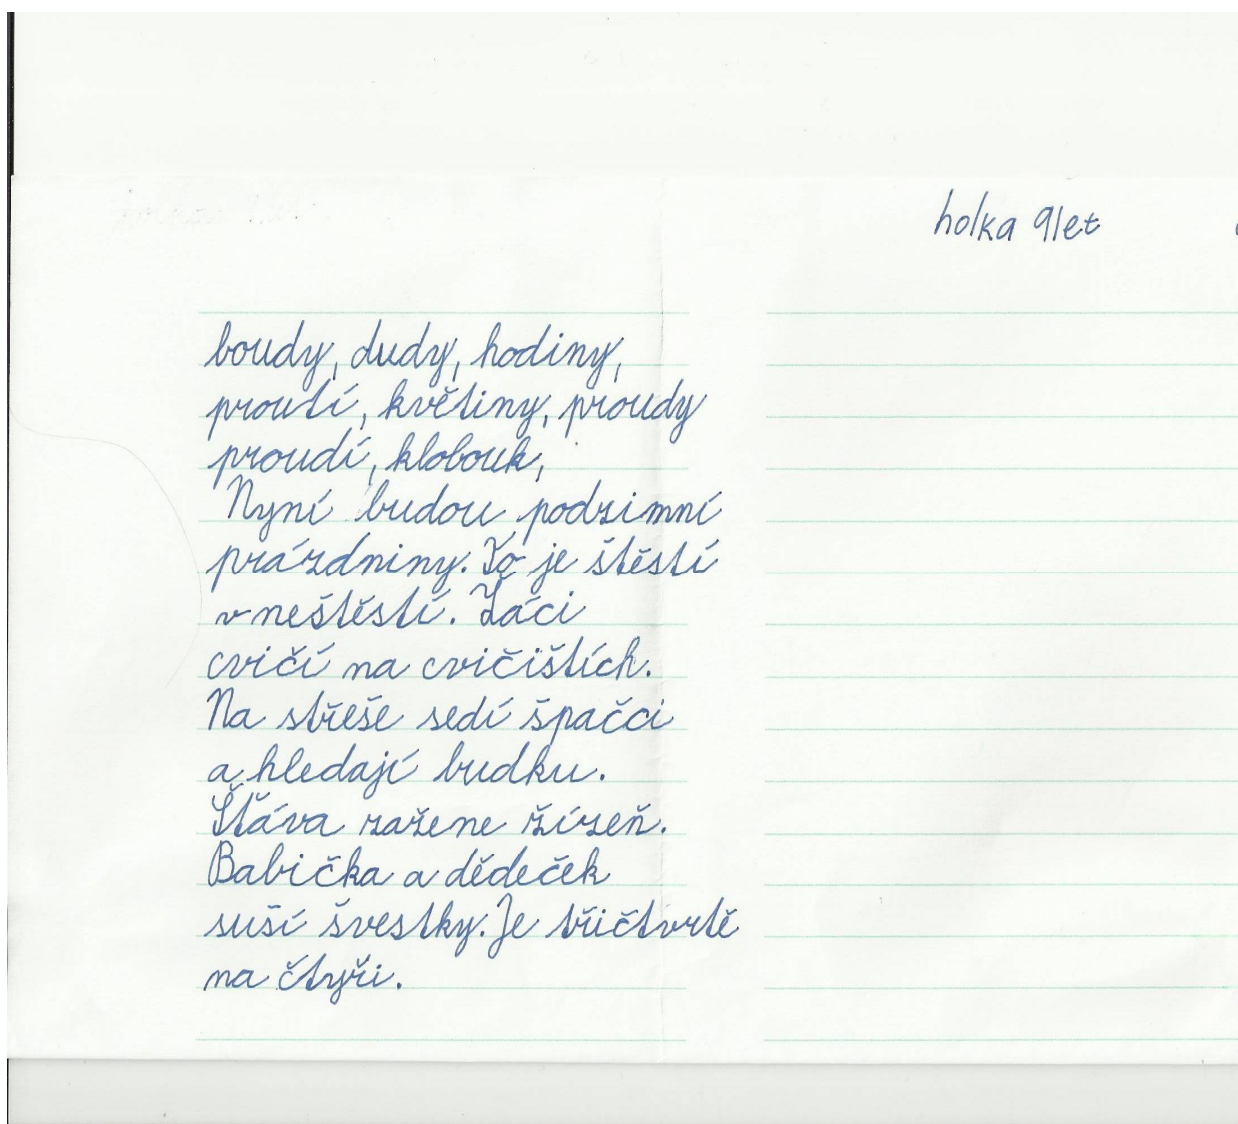 holka 9let
boudy, dudy, hodiny,
proutí, květiny, proudy
proudí, klobouk,
Nyní budou podzimní
prázdniny. To je štěstí
v neštěstí. Žáci
cvičí na cvičištích.
Na střeše sedí špačci
a hledají budku.
Šťáva zažene žízeň.
Babička a dědeček
suší švestky. Je třičtvrtě
na čtyři.